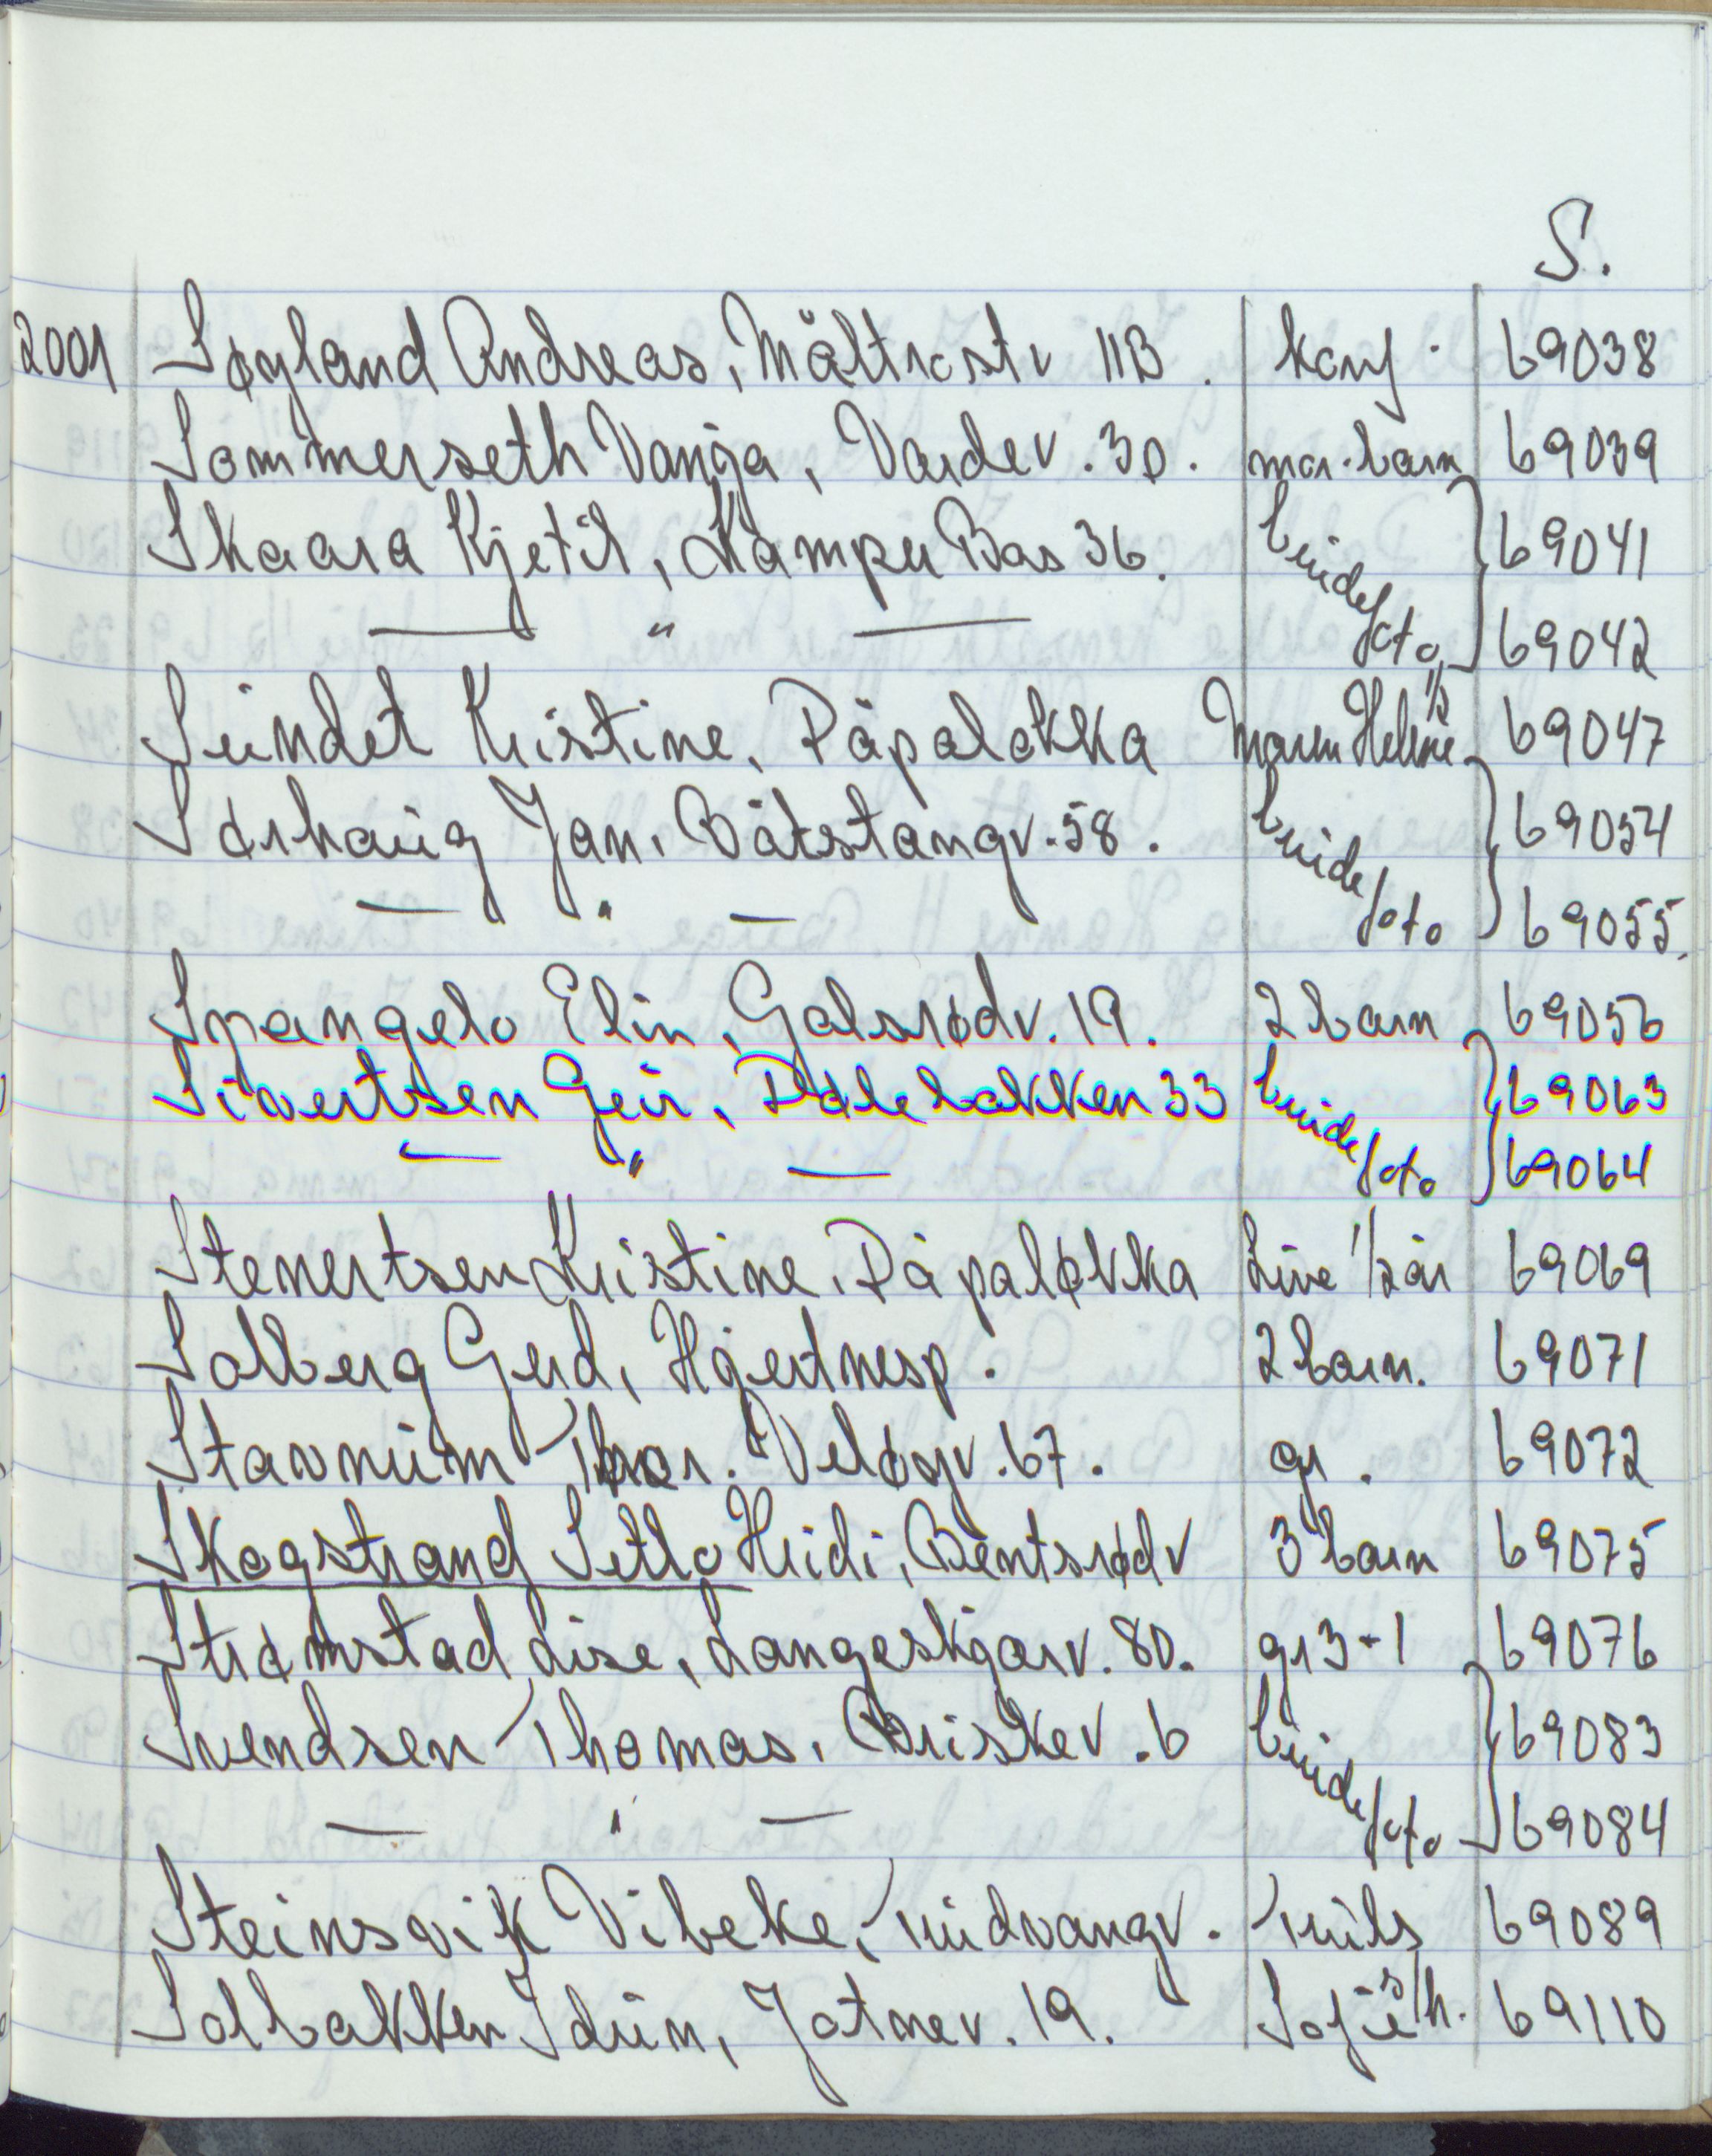 S.
2001 Søyland Andreas, Måltrostv 11B. konf. 69038
Sommerseth Vanja, Vardev. 30. mor-barn 69039
Skaara Kjetil, Kampen Bas 36. brudefoto 69041
— " — 69042
Sundet Kristine, Påpaløkka Maren Helene 1/2 69047
Sørhaug Jan, Båtstangv. 58. brudefoto 69054
— " — 69055.
Spangelo Elin, Galsrødv. 19. 2 barn 69056
Sivertsen Geir, Dølebakken 33 brudefoto 69063
— " — 69064
Stenertsen Kristine, Påpaløkka Line 1/2 år 69069
Solberg Gerd, Hjertnesp. 2 barn. 69071
Stavnum Thor. Veløyv. 67. gr. 69072
Skogstrand Setlo Heidi, Bentsrødv 3 barn 69075
Strømstad Lise, Langeskjærv. 80. gr 3-1 69076
Svendsen Thomas, Briskev. 6 brudefoto 69083
— " — 69084
Steinsvik Vibeke, Tuidvangv. Truls 69089
Solbakken Idun, Jotnev. 19. Sofie 69110